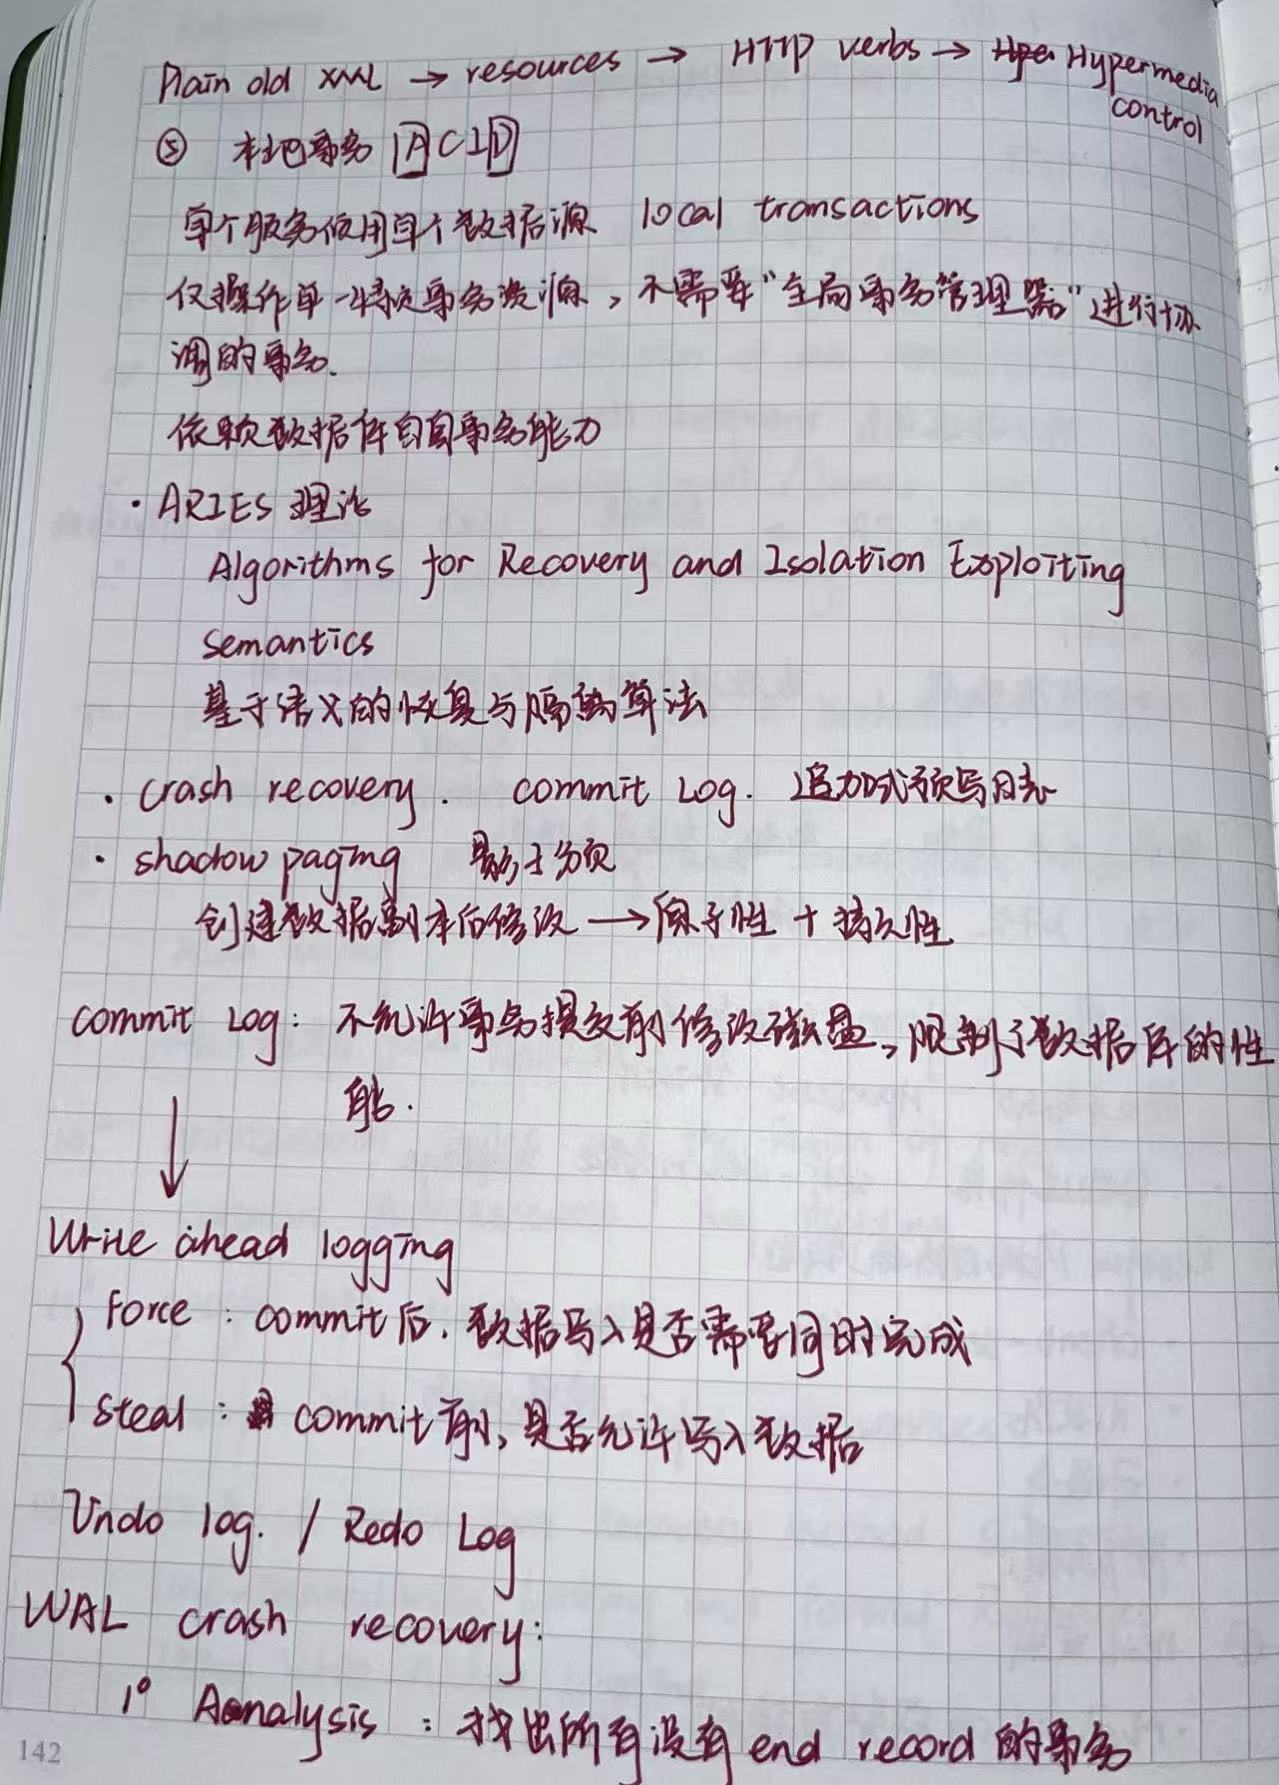 Plain old XML → resources → HTTP verbs → Hypermedia
control
⑤ 本地事务 ACID
单个服务使用单个数据源 local transactions
仅操作单一特定事务资源，不需要"全局事务管理器"进行协
调的事务.
依赖数据库自身事务能力
· ARIES 理论
Algorithms for Recovery and Isolation Exploiting
Semantics
基于语义的恢复与隔离算法
· crash recovery. commit Log. 追加式预写日志
· shadow paging 影子分页
创建数据副本后修改 → 原子性 + 持久性
commit Log: 不允许事务提交前修改磁盘，限制了数据库的性
能.
↓
Write ahead logging
Force : commit后, 数据写入是否需要同时完成
Steal : commit前, 是否允许写入数据
Undo log. / Redo Log
WAL crash recovery:
1° Analysis : 找出所有没有 end record 的事务
142